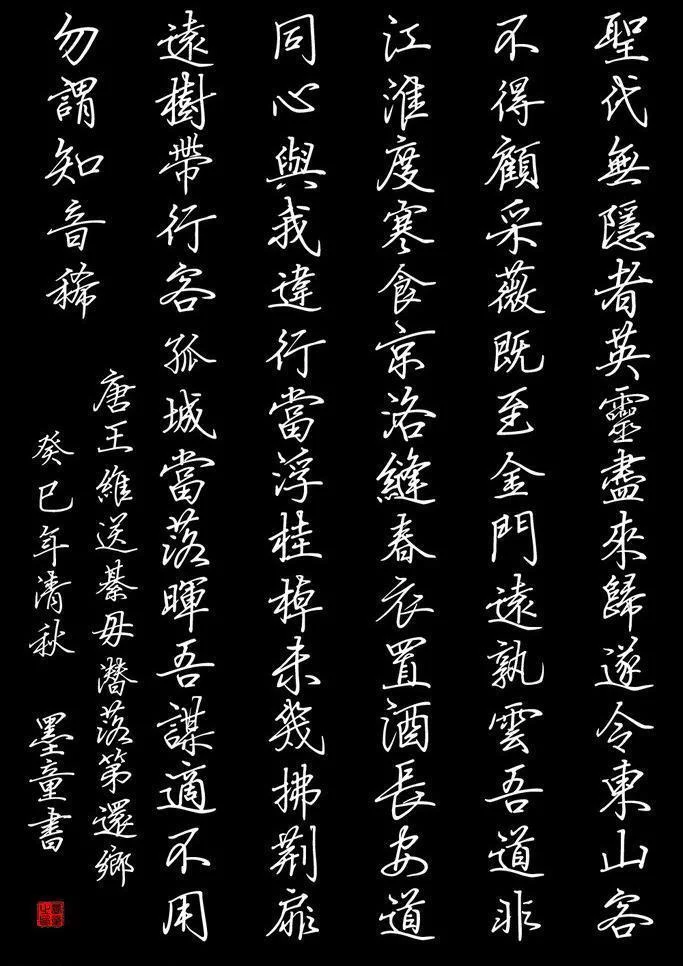 聖代無隱者英靈盡來歸遂令東山客
不得顧采薇既至金門遠孰雲吾道非
江淮度寒食京洛縫春衣置酒長安道
同心與我違行當浮桂棹未幾拂荆扉
遠樹帶行客孤城當落暉吾謀適不用
勿謂知音稀
唐王維送綦毋潛落第還鄉
癸巳年清秋 墨童書